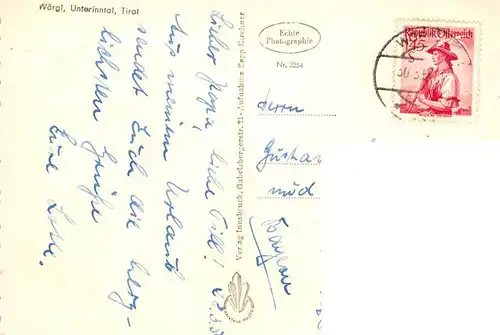 Wörgl, Unterinntal, Tirol
Lieber Papa, liebe Tilli!
Aus meinem Urlaub
sendet Euch die herz-
lichsten Grüße
Eure Lotte.
Verlag Innsbruck, Gabelsbergerstr. 21 - Aufnahme Sepp Kirchner
Echte
Photographie
Nr. 2254
Republik Österreich
Herrn
Gustav
und
Bayern